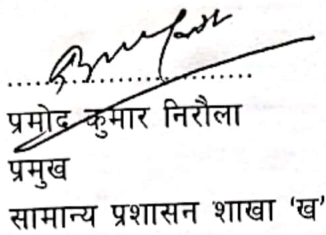 ..............................
प्रमोद कुमार निरौला
प्रमुख
सामान्य प्रशासन शाखा 'ख'